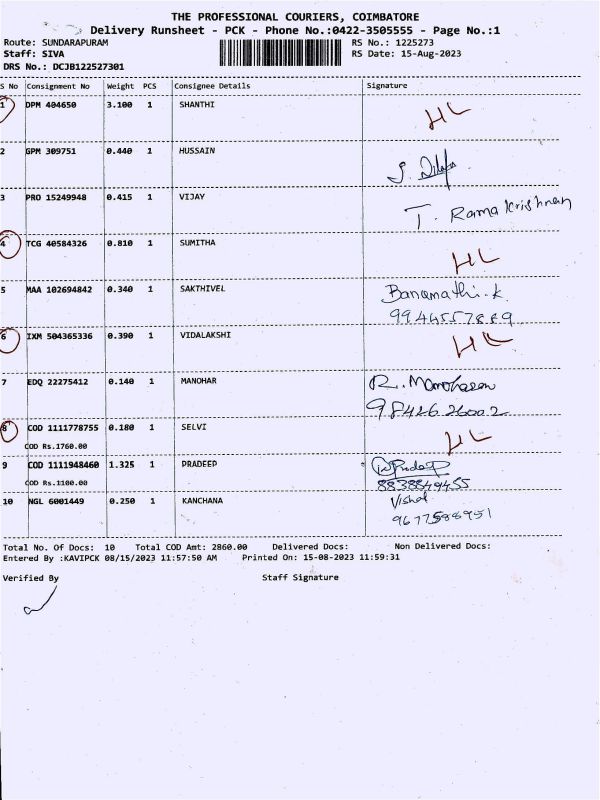 THE PROFESSIONAL COURIERS, COIMBATORE
Delivery Runsheet - PCK - Phone No.:0422-3505555 - Page No.:1
Route: SUNDARAPURAM RS No.: 1225273
Staff: SIVA RS Date: 15-Aug-2023
DRS No.: DCJB122527301
S No Consignment No Weight PCS Consignee Details Signature
1 DPM 404650 3.100 1 SHANTHI HL
2 GPM 309751 0.440 1 HUSSAIN
3 PRO 15249948 0.415 1 VIJAY T. Ramakrishnan
4 TCG 40584326 0.810 1 SUMITHA HL
5 MAA 102694842 0.340 1 SAKTHIVEL Banamathi.k
9944557889
6 IXM 504365336 0.390 1 VIDALAKSHI HL
7 EDQ 22275412 0.140 1 MANOHAR R. Manoharan
98426 26002
8 COD 1111778755 0.180 1 SELVI HL
COD Rs.1760.00
9 COD 1111948460 1.325 1 PRADEEP Pradeep
COD Rs.1100.00 8838849455
10 NGL 6001449 0.250 1 KANCHANA Vishal
9677588951
Total No. Of Docs: 10 Total COD Amt: 2860.00 Delivered Docs: Non Delivered Docs:
Entered By :KAVIPCK 08/15/2023 11:57:50 AM Printed On: 15-08-2023 11:59:31
Verified By Staff Signature